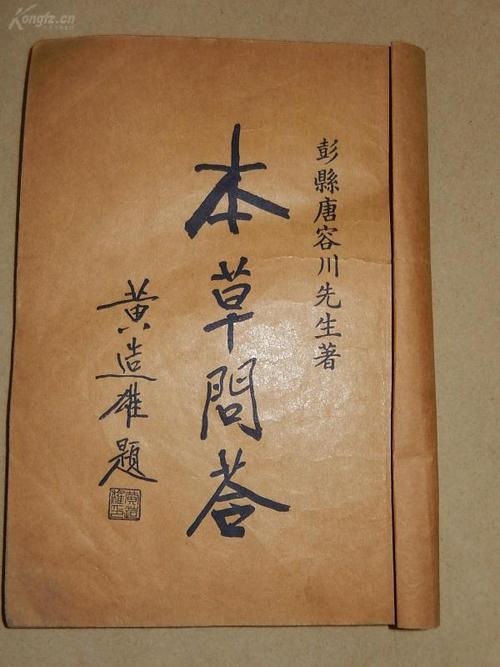 Kongfz.cn
彭縣唐容川先生著
本草問荅
黄造雄題